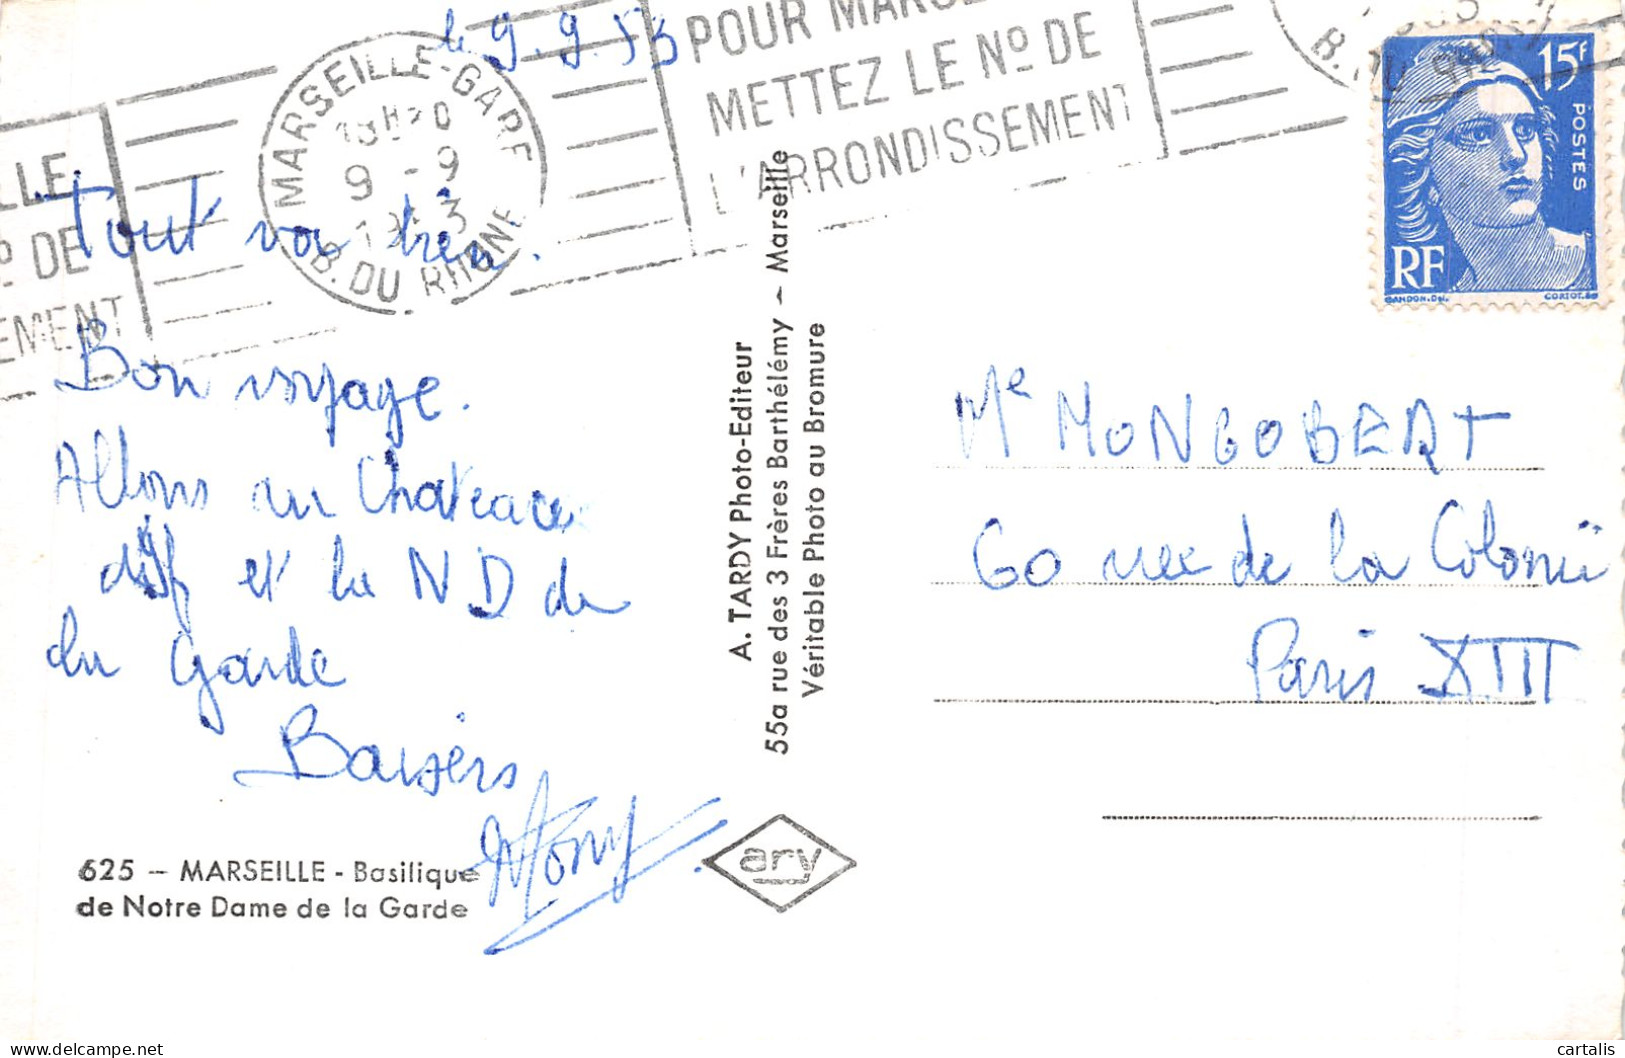 le 9.9.53
POUR MARSE
METTEZ LE Nº DE
L'ARRONDISSEMENT
MARSEILLE-GARE
9 - 9
B. DU RHONE
LLE
º DE
EMENT
15F
POSTES
RF
GANDON.Del.
CORTOT.Sc
Tout va bien.
Bon voyage.
Allons au Chateau
d'if et la N D de
la Garde
Baisers
Tony
Me MONGOBERT
60 rue de la Colonie
Paris XIII
A. TARDY Photo-Editeur
55a rue des 3 Frères Barthélémy - Marseille
Véritable Photo au Bromure
625 - MARSEILLE - Basilique
de Notre Dame de la Garde
ary
cartalis